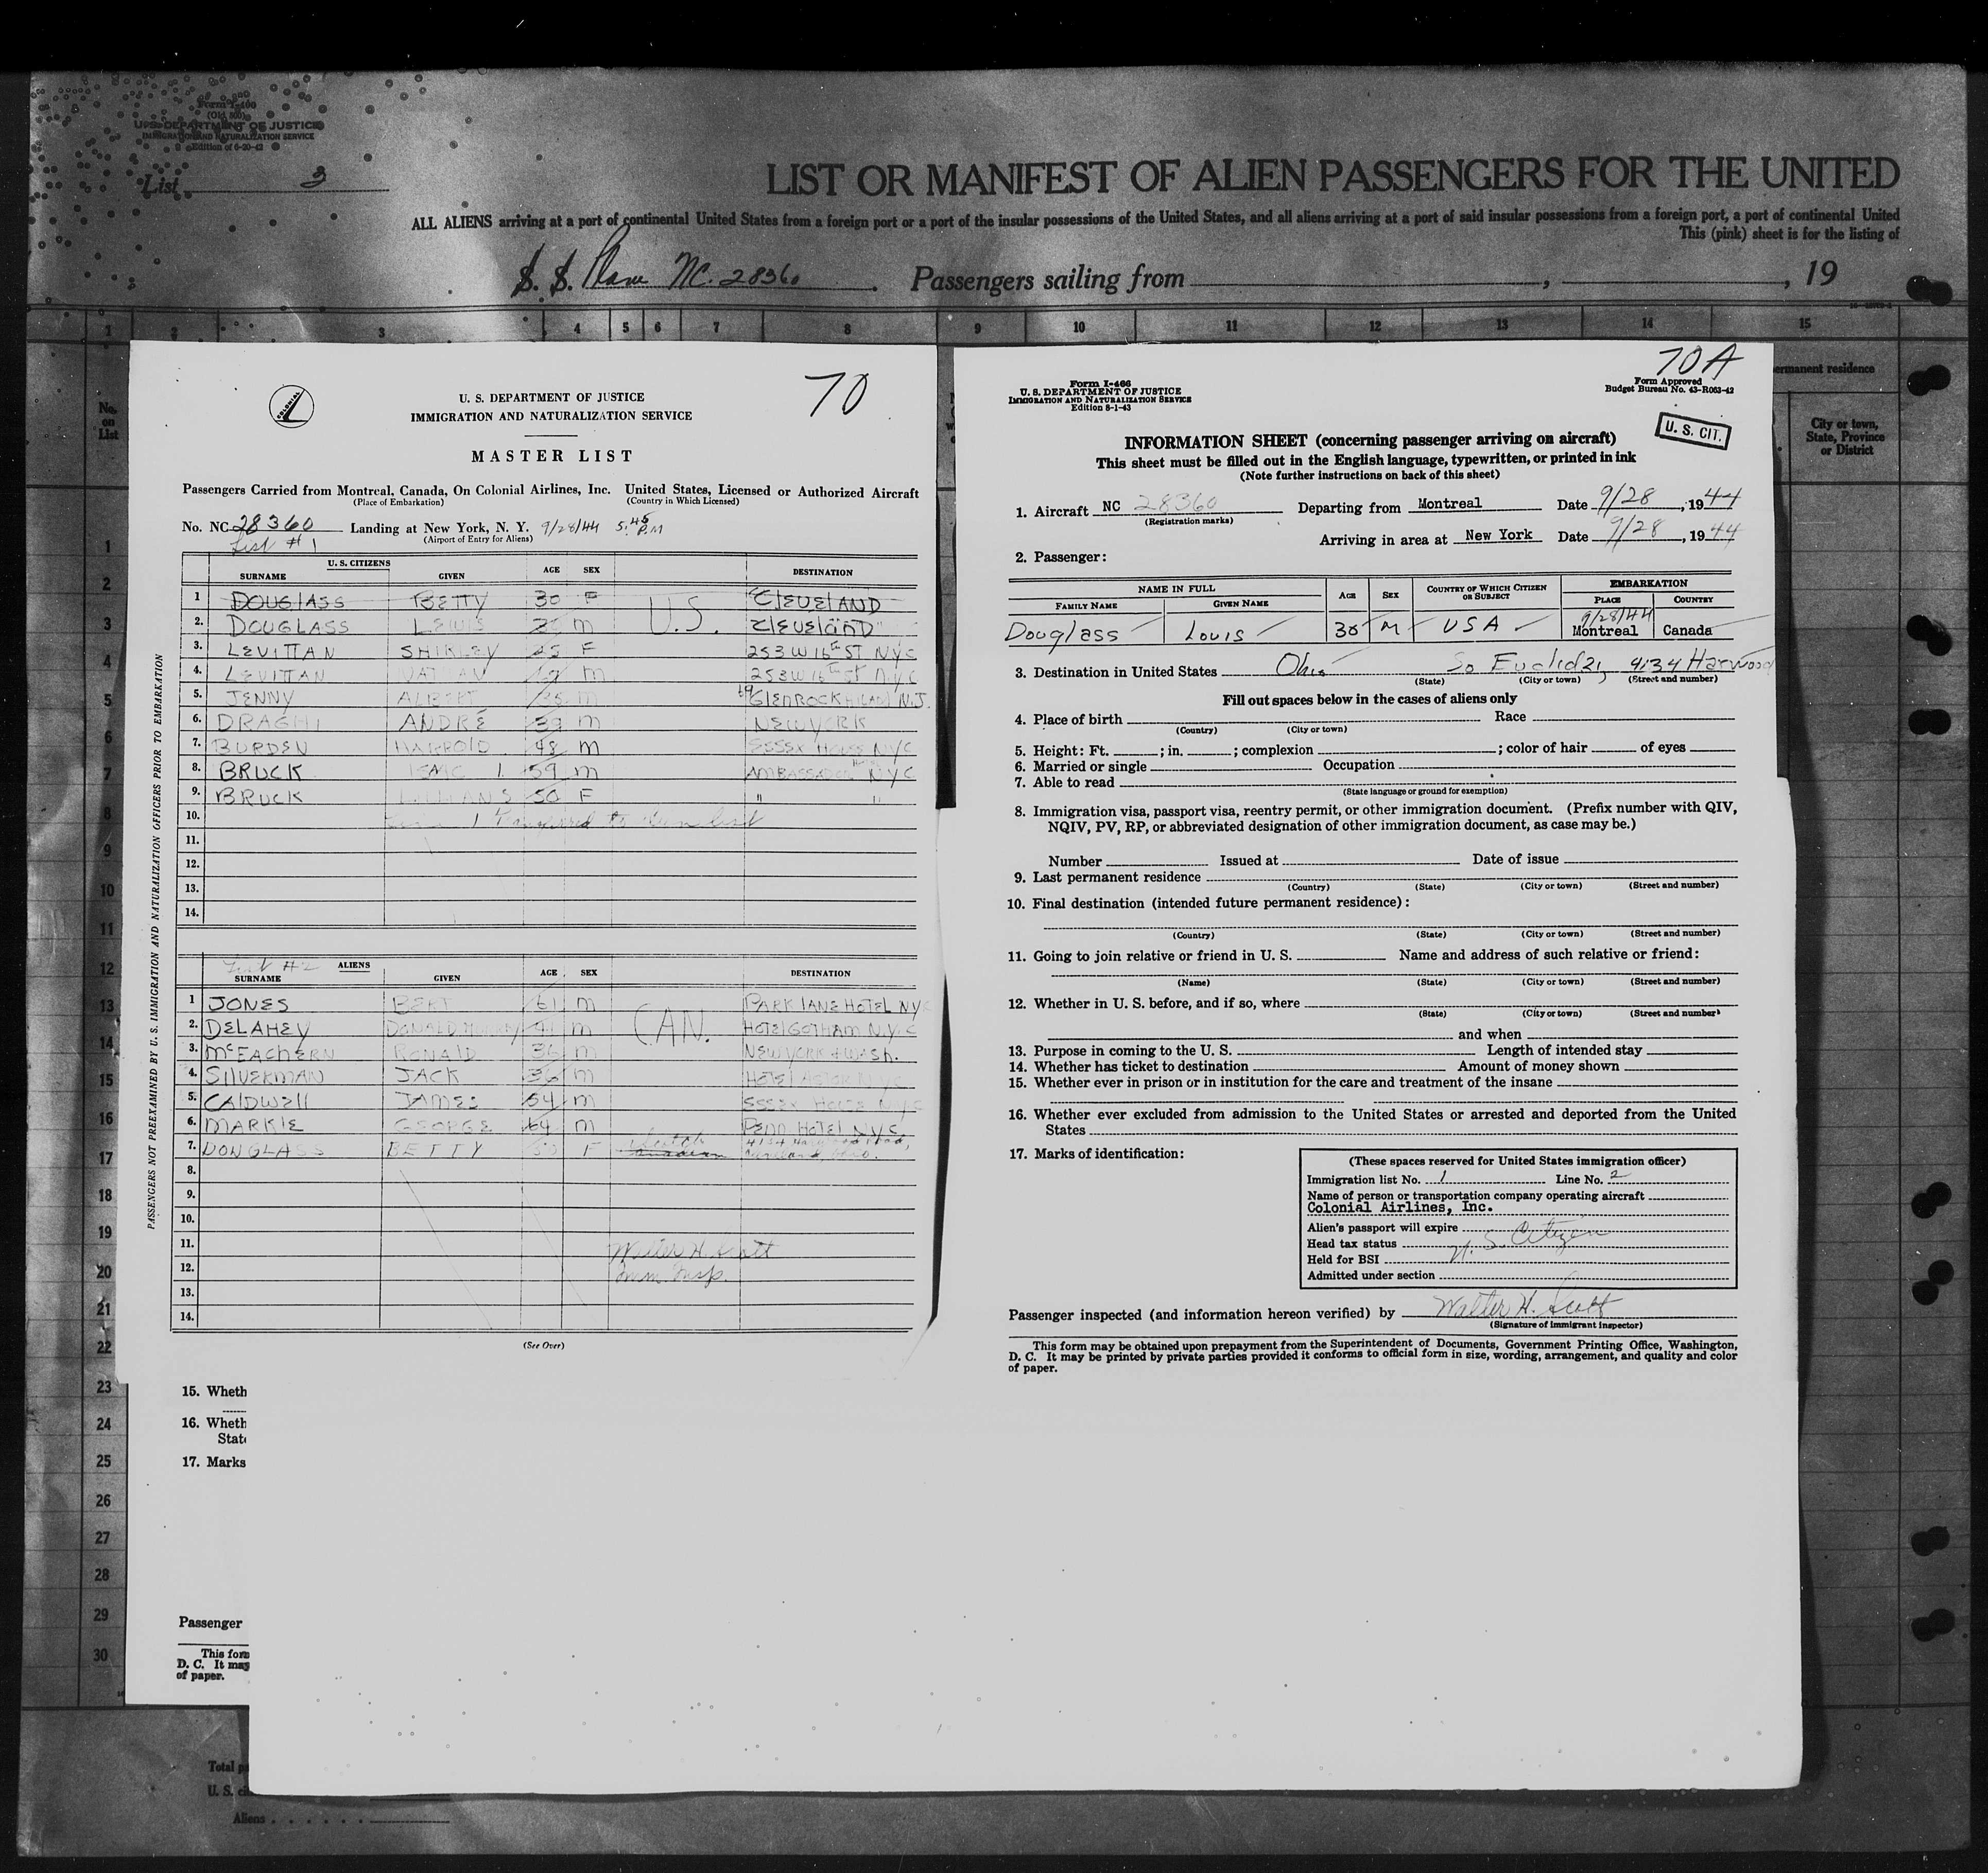 Form I-400
(Old 500)
U. S. DEPARTMENT OF JUSTICE
IMMIGRATION AND NATURALIZATION SERVICE
Edition of 6-20-42
List 3
LIST OR MANIFEST OF ALIEN PASSENGERS FOR THE UNITED
ALL ALIENS arriving at a port of continental United States from a foreign port or a port of the insular possessions of the United States, and all aliens arriving at a port of said insular possessions from a foreign port, a port of continental United
This (pink) sheet is for the listing of
S. S. Plane NC. 28360 Passengers sailing from , , 19
1 2 3 4 5 6 7 8 9 10 11 12 13 14 15
ermanent residence
No. on List
City or town, State, Province or District
COLONIAL
70
U. S. DEPARTMENT OF JUSTICE
IMMIGRATION AND NATURALIZATION SERVICE
MASTER LIST
Passengers Carried from Montreal, Canada, On Colonial Airlines, Inc. United States, Licensed or Authorized Aircraft
(Place of Embarkation) (Country in Which Licensed)
No. NC 28360 Landing at New York, N. Y. 9/28/44 5:45 P.M
(Airport of Entry for Aliens)
List #1
U. S. CITIZENS
SURNAME GIVEN AGE SEX DESTINATION
1 DOUGLASS BETTY 30 F U.S. CLEVELAND
2. DOUGLASS LEWIS m CLEVELAND
3. LEVITTAN SHIRLEY 25 F 253 W 16th ST NYC
4. LEVITTAN NATHAN m 253 W 16th St N.Y.C
5. JENNY ALBERT 35 m GLENROCK N.J.
6. DRAGHI ANDRÉ 39 m NEW YORK
7. BURDEN HARROLD 48 m ESSEX HOUSE NYC
8. BRUCK ISAAC I. 59 m AMBASSADOR NYC
9. BRUCK 50 F " "
10. Line 1 transferred to alien list
11.
12.
13.
14.
List #2 ALIENS
SURNAME GIVEN AGE SEX DESTINATION
1 JONES BERT 61 m CAN. PARK LANE HOTEL NYC
2. DELAHEY DONALD 41 m HOTEL GOTHAM N.Y.C
3. McEACHERN RONALD 36 m NEW YORK & WASH.
4. SILVERMAN JACK 36 m HOTEL ASTOR NYC
5. CALDWELL JAMES 54 m ESSEX HOUSE NYC
6. MARKLE GEORGE 64 m PENN HOTEL NYC
7. DOUGLASS BETTY 30 F Scotch Canadian 4134 Harwood Road, Cleveland, Ohio.
8.
9.
10.
11. Walter H. Scott
12. Imm. Insp.
13.
14.
(See Over)
PASSENGERS NOT PREEXAMINED BY U. S. IMMIGRATION AND NATURALIZATION OFFICERS PRIOR TO EMBARKATION
70A
Form I-466
U. S. DEPARTMENT OF JUSTICE
IMMIGRATION AND NATURALIZATION SERVICE
Edition 8-1-43
Form Approved
Budget Bureau No. 43-R063-42
U. S. CIT.
INFORMATION SHEET (concerning passenger arriving on aircraft)
This sheet must be filled out in the English language, typewritten, or printed in ink
(Note further instructions on back of this sheet)
1. Aircraft NC 28360 Departing from Montreal Date 9/28, 1944
(Registration marks)
Arriving in area at New York Date 9/28, 1944
2. Passenger:
NAME IN FULL AGE SEX COUNTRY OF WHICH CITIZEN OR SUBJECT EMBARKATION
FAMILY NAME GIVEN NAME PLACE COUNTRY
9/28/44
Douglass Louis 30 M USA Montreal Canada
3. Destination in United States Ohio So Euclid 21, 4134 Harwood
(State) (City or town) (Street and number)
Fill out spaces below in the cases of aliens only
4. Place of birth Race
(Country) (City or town)
5. Height: Ft. ; in. ; complexion ; color of hair of eyes
6. Married or single Occupation
7. Able to read
(State language or ground for exemption)
8. Immigration visa, passport visa, reentry permit, or other immigration document. (Prefix number with QIV,
NQIV, PV, RP, or abbreviated designation of other immigration document, as case may be.)
Number Issued at Date of issue
9. Last permanent residence
(Country) (State) (City or town) (Street and number)
10. Final destination (intended future permanent residence):
(Country) (State) (City or town) (Street and number)
11. Going to join relative or friend in U. S. Name and address of such relative or friend:
(Name) (State) (City or town) (Street and number)
12. Whether in U. S. before, and if so, where
(State) (City or town) (Street and number)
and when
13. Purpose in coming to the U. S. Length of intended stay
14. Whether has ticket to destination Amount of money shown
15. Whether ever in prison or in institution for the care and treatment of the insane
16. Whether ever excluded from admission to the United States or arrested and deported from the United
States
17. Marks of identification:
(These spaces reserved for United States immigration officer)
Immigration list No. 1 Line No. 2
Name of person or transportation company operating aircraft
Colonial Airlines, Inc.
Alien's passport will expire
Head tax status U. S. Citizen
Held for BSI
Admitted under section
Passenger inspected (and information hereon verified) by Walter H. Scott
(Signature of immigrant inspector)
This form may be obtained upon prepayment from the Superintendent of Documents, Government Printing Office, Washington,
D. C. It may be printed by private parties provided it conforms to official form in size, wording, arrangement, and quality and color
of paper.
1
2
3
4
5
6
7
8
9
10
11
12
13
14
15
16
17
18
19
20
21
22
23
24
25
26
27
28
29
30
15. Wheth
16. Wheth
State
17. Marks
Passenger
This form
D. C. It may
of paper.
Total p
U. S. cit
Aliens